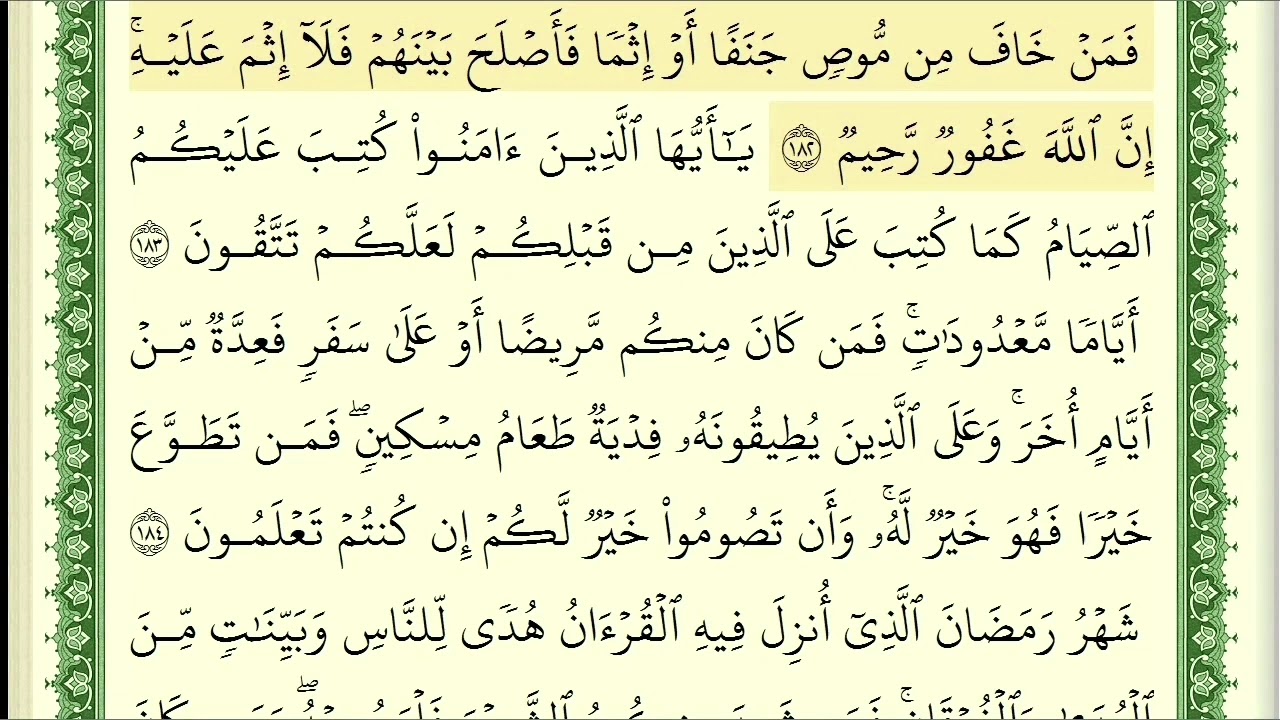 فَمَنۡ خَافَ مِن مُّوصٖ جَنَفًا أَوۡ إِثۡمٗا فَأَصۡلَحَ بَيۡنَهُمۡ فَلَآ إِثۡمَ عَلَيۡهِۚ
إِنَّ ٱللَّهَ غَفُورٞ رَّحِيمٞ ١٨٢ يَـٰٓأَيُّهَا ٱلَّذِينَ ءَامَنُواْ كُتِبَ عَلَيۡكُمُ
ٱلصِّيَامُ كَمَا كُتِبَ عَلَى ٱلَّذِينَ مِن قَبۡلِكُمۡ لَعَلَّكُمۡ تَتَّقُونَ ١٨٣
أَيَّامٗا مَّعۡدُودَٰتٖۚ فَمَن كَانَ مِنكُم مَّرِيضًا أَوۡ عَلَىٰ سَفَرٖ فَعِدَّةٞ مِّنۡ
أَيَّامٍ أُخَرَۚ وَعَلَى ٱلَّذِينَ يُطِيقُونَهُۥ فِدۡيَةٞ طَعَامُ مِسۡكِينٖۖ فَمَن تَطَوَّعَ
خَيۡرٗا فَهُوَ خَيۡرٞ لَّهُۥۚ وَأَن تَصُومُواْ خَيۡرٞ لَّكُمۡ إِن كُنتُمۡ تَعۡلَمُونَ ١٨٤
شَهۡرُ رَمَضَانَ ٱلَّذِيٓ أُنزِلَ فِيهِ ٱلۡقُرۡءَانُ هُدٗى لِّلنَّاسِ وَبَيِّنَٰتٖ مِّنَ